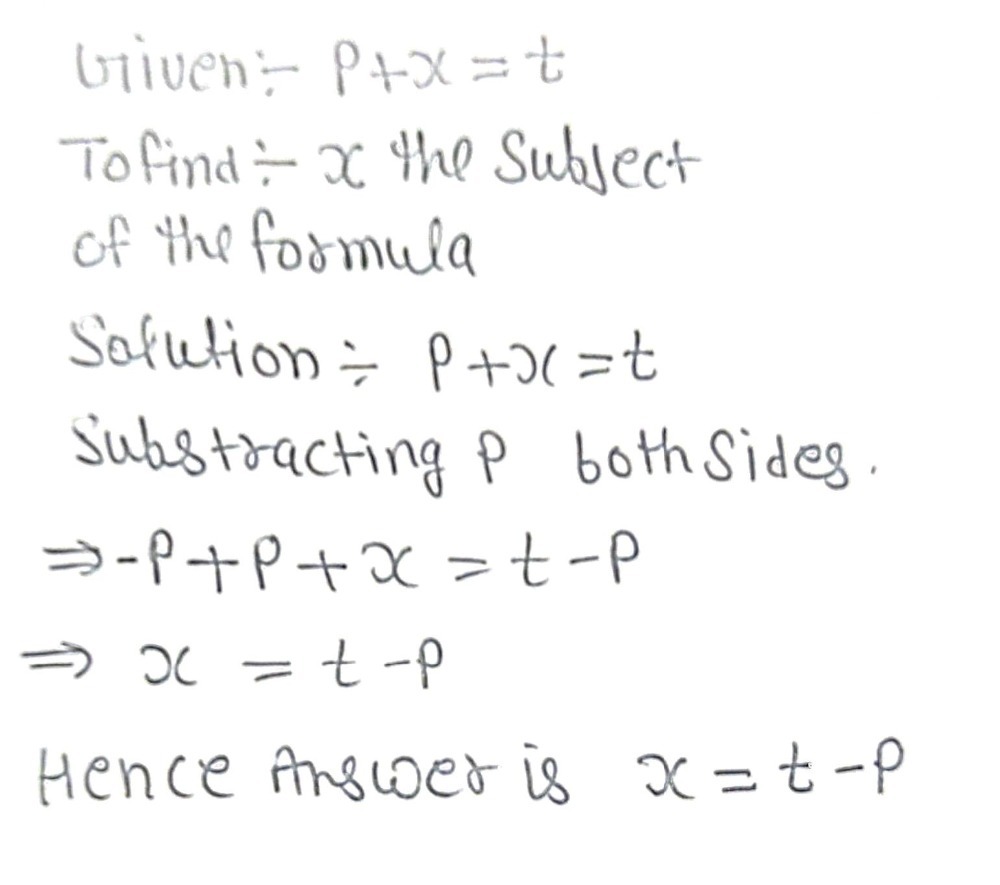 Given:- P+x=t
To find:- x the Subject
of the formula
Solution:- P+x=t
Substracting P both Sides.
⇒-P+P+x=t-P
⇒ x = t-P
Hence Answer is x=t-P